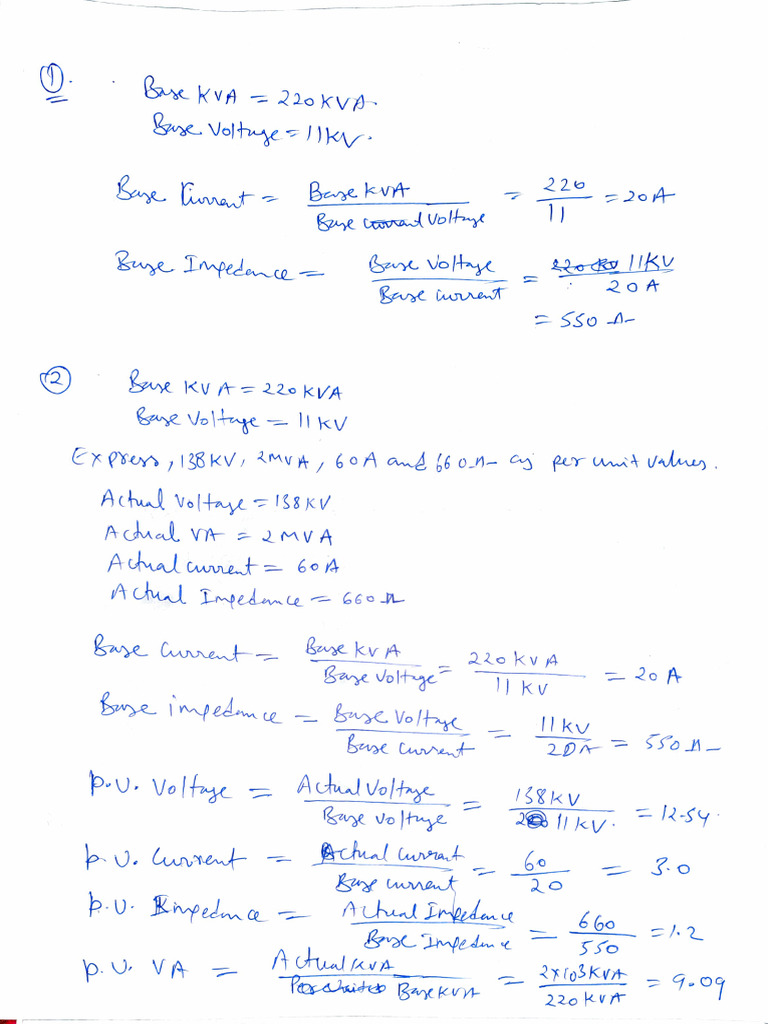 ①.
Base KVA = 220KVA.
Base Voltage = 11KV.
Base Current = Base KVA / Base Voltage = 220 / 11 = 20A
Base Impedance = Base Voltage / Base Current = 11KV / 20A
= 550 Ω
②
Base KVA = 220KVA
Base Voltage = 11KV
Express, 138KV, 2MVA, 60A and 660Ω as per unit values.
Actual Voltage = 138KV
Actual VA = 2MVA
Actual current = 60A
Actual Impedance = 660Ω
Base Current = Base KVA / Base Voltage = 220KVA / 11KV = 20A
Base impedance = Base Voltage / Base Current = 11KV / 20A = 550Ω
p.u. Voltage = Actual Voltage / Base voltage = 138KV / 11KV. = 12.54.
p.u. Current = Actual Current / Base current = 60 / 20 = 3.0
p.u. impedance = Actual Impedance / Base Impedance = 660 / 550 = 1.2
p.u. VA = Actual KVA / Base KVA = 2×10³KVA / 220KVA = 9.09